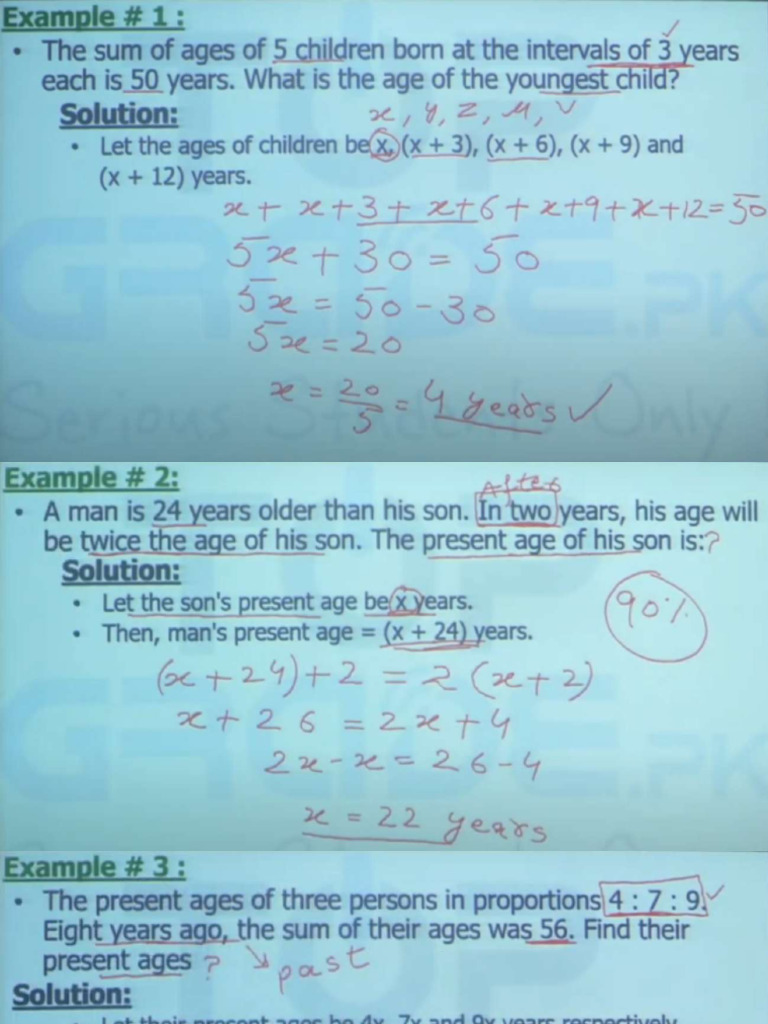 Example # 1 :
• The sum of ages of 5 children born at the intervals of 3 years
each is 50 years. What is the age of the youngest child?
Solution:
x, y, z, u, v
• Let the ages of children be x, (x + 3), (x + 6), (x + 9) and
(x + 12) years.
x + x+3 + x+6 + x+9 + x+12 = 50
5x + 30 = 50
5x = 50 - 30
5x = 20
x = 20/5 = 4 years ✓
Serious Students Only
Example # 2:
After
• A man is 24 years older than his son. In two years, his age will
be twice the age of his son. The present age of his son is:?
Solution:
• Let the son's present age be x years.
90%
• Then, man's present age = (x + 24) years.
(x + 24) + 2 = 2 (x + 2)
x + 26 = 2x + 4
2x - x = 26 - 4
x = 22 years
Example # 3 :
• The present ages of three persons in proportions 4 : 7 : 9. ✓
Eight years ago, the sum of their ages was 56. Find their
present ages ? ↘ past
Solution:
• Let their present ages be 4x, 7x and 9x years respectively